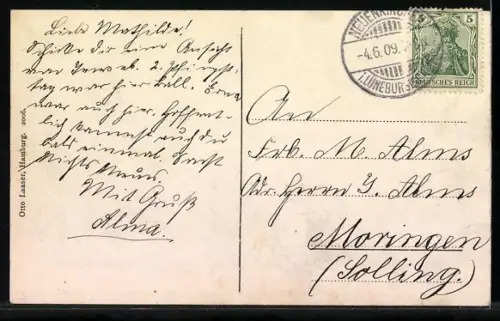 Liebe Mathilde!
Schicke dir eine Ansicht
von 2. Pfingst-
tag war hier Ball. Erna
war auch hier. Hoffent-
lich kommst auch du
bald einmal. Sonst
Nichts Neues.
Mit Gruß
Alma.
Otto Laaser, Hamburg. 2006.
NEUENKIRCHEN
-4.6.09.
LÜNEBURG
5 5
DEUTSCHES REICH
An
Frl. M. Alms
Adr. Herrn J. Alms
Moringen
(Solling.)